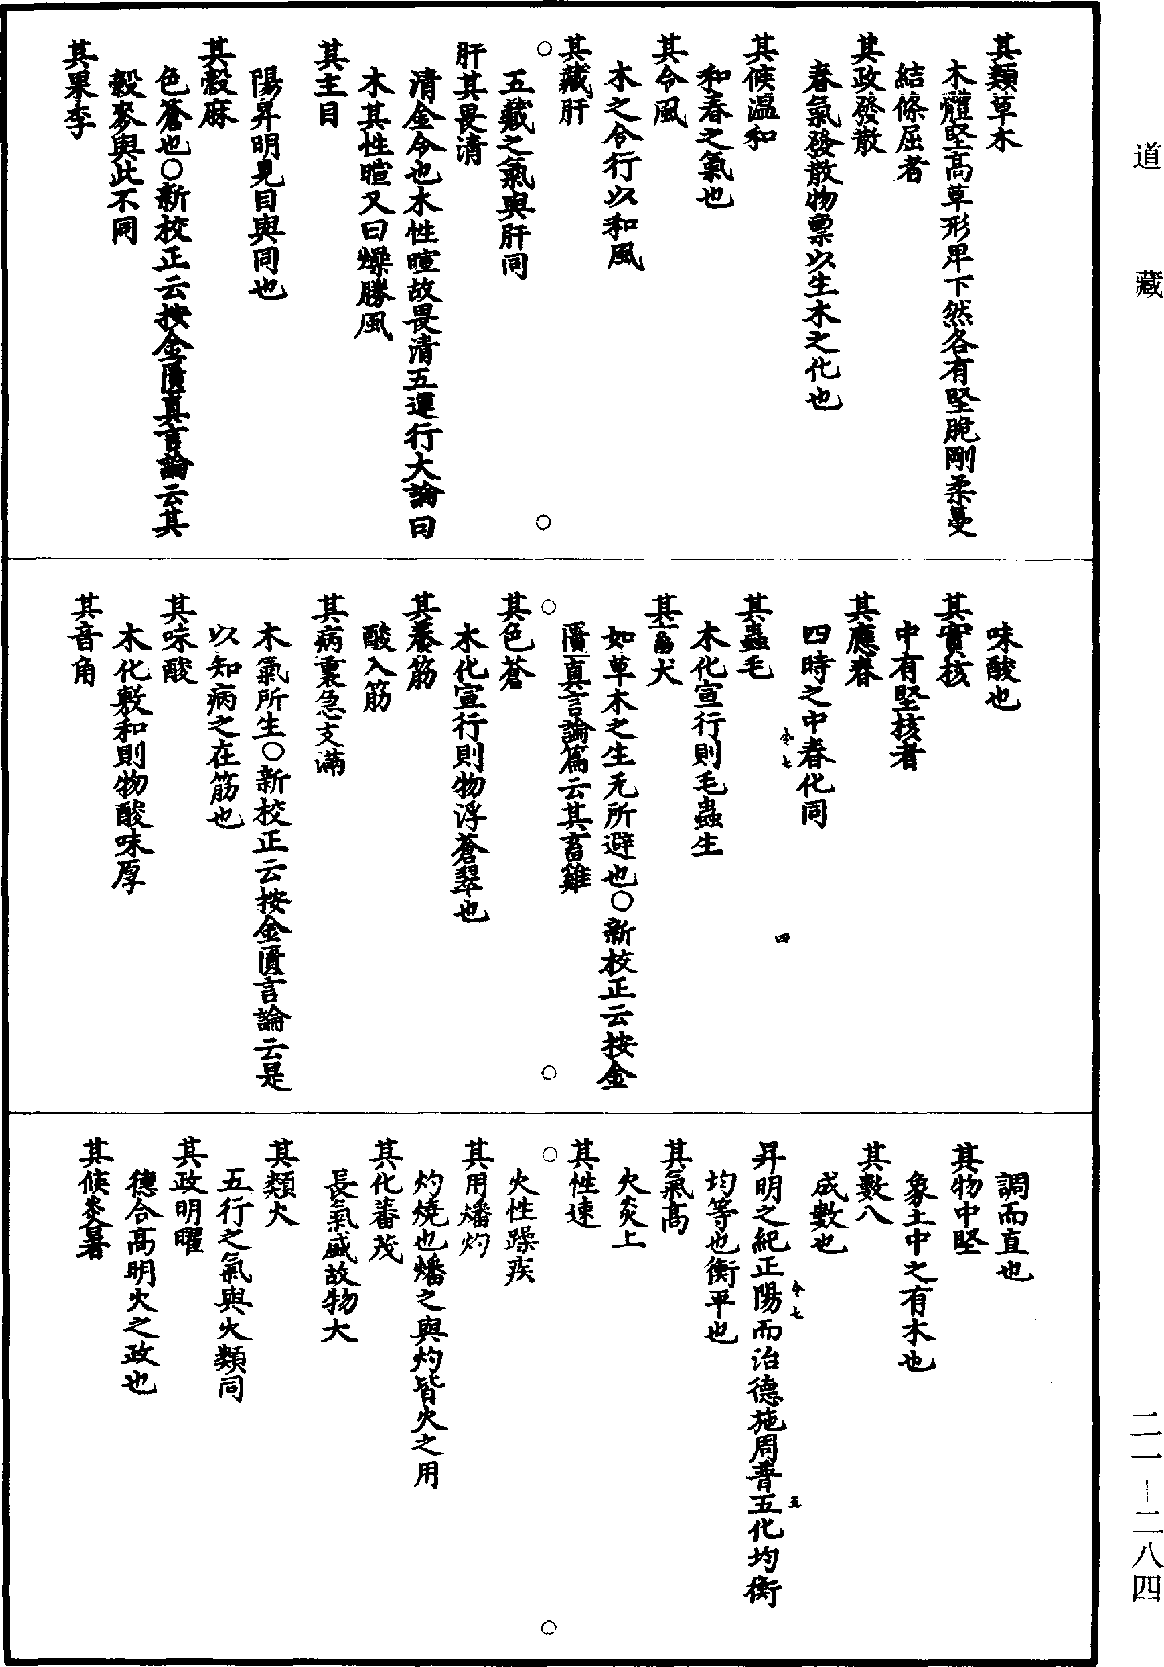 道藏
其類草木
木體堅高草形卑下然各有堅脆剛柔蔓
結條屈者
其政發散
春氣發散物稟以生木之化也
其候温和
和春之氣也
其令風
木之令行以和風
其藏肝
五藏之氣與肝同
肝其畏清
清金令也木性暄故畏清五運行大論曰
木其性暄又曰燥勝風
其主目
陽昇明見目與同也
其穀麻
色蒼也○新校正云按金匱真言論云其
穀麥與此不同
其果李
味酸也
其實核
中有堅核者
其應春
四時之中春化同
令七
四
其蟲毛
木化宣行則毛蟲生
其畜犬
如草木之生无所避也○新校正云按金
匱真言論篇云其畜雞
其色蒼
木化宣行則物浮蒼翠也
其養筋
酸入筋
其病裏急支滿
木氣所生○新校正云按金匱言論云是
以知病之在筋也
其味酸
木化敷和則物酸味厚
其音角
調而直也
其物中堅
象土中之有木也
其數八
成數也
令七
五
昇明之紀正陽而治德施周普五化均衡
均等也衡平也
其氣高
火炎上
其性速
火性躁疾
其用燔灼
灼燒也燔之與灼皆火之用
其化蕃茂
長氣盛故物大
其類火
五行之氣與火類同
其政明曜
德合高明火之政也
其候炎暑
二一－二八四